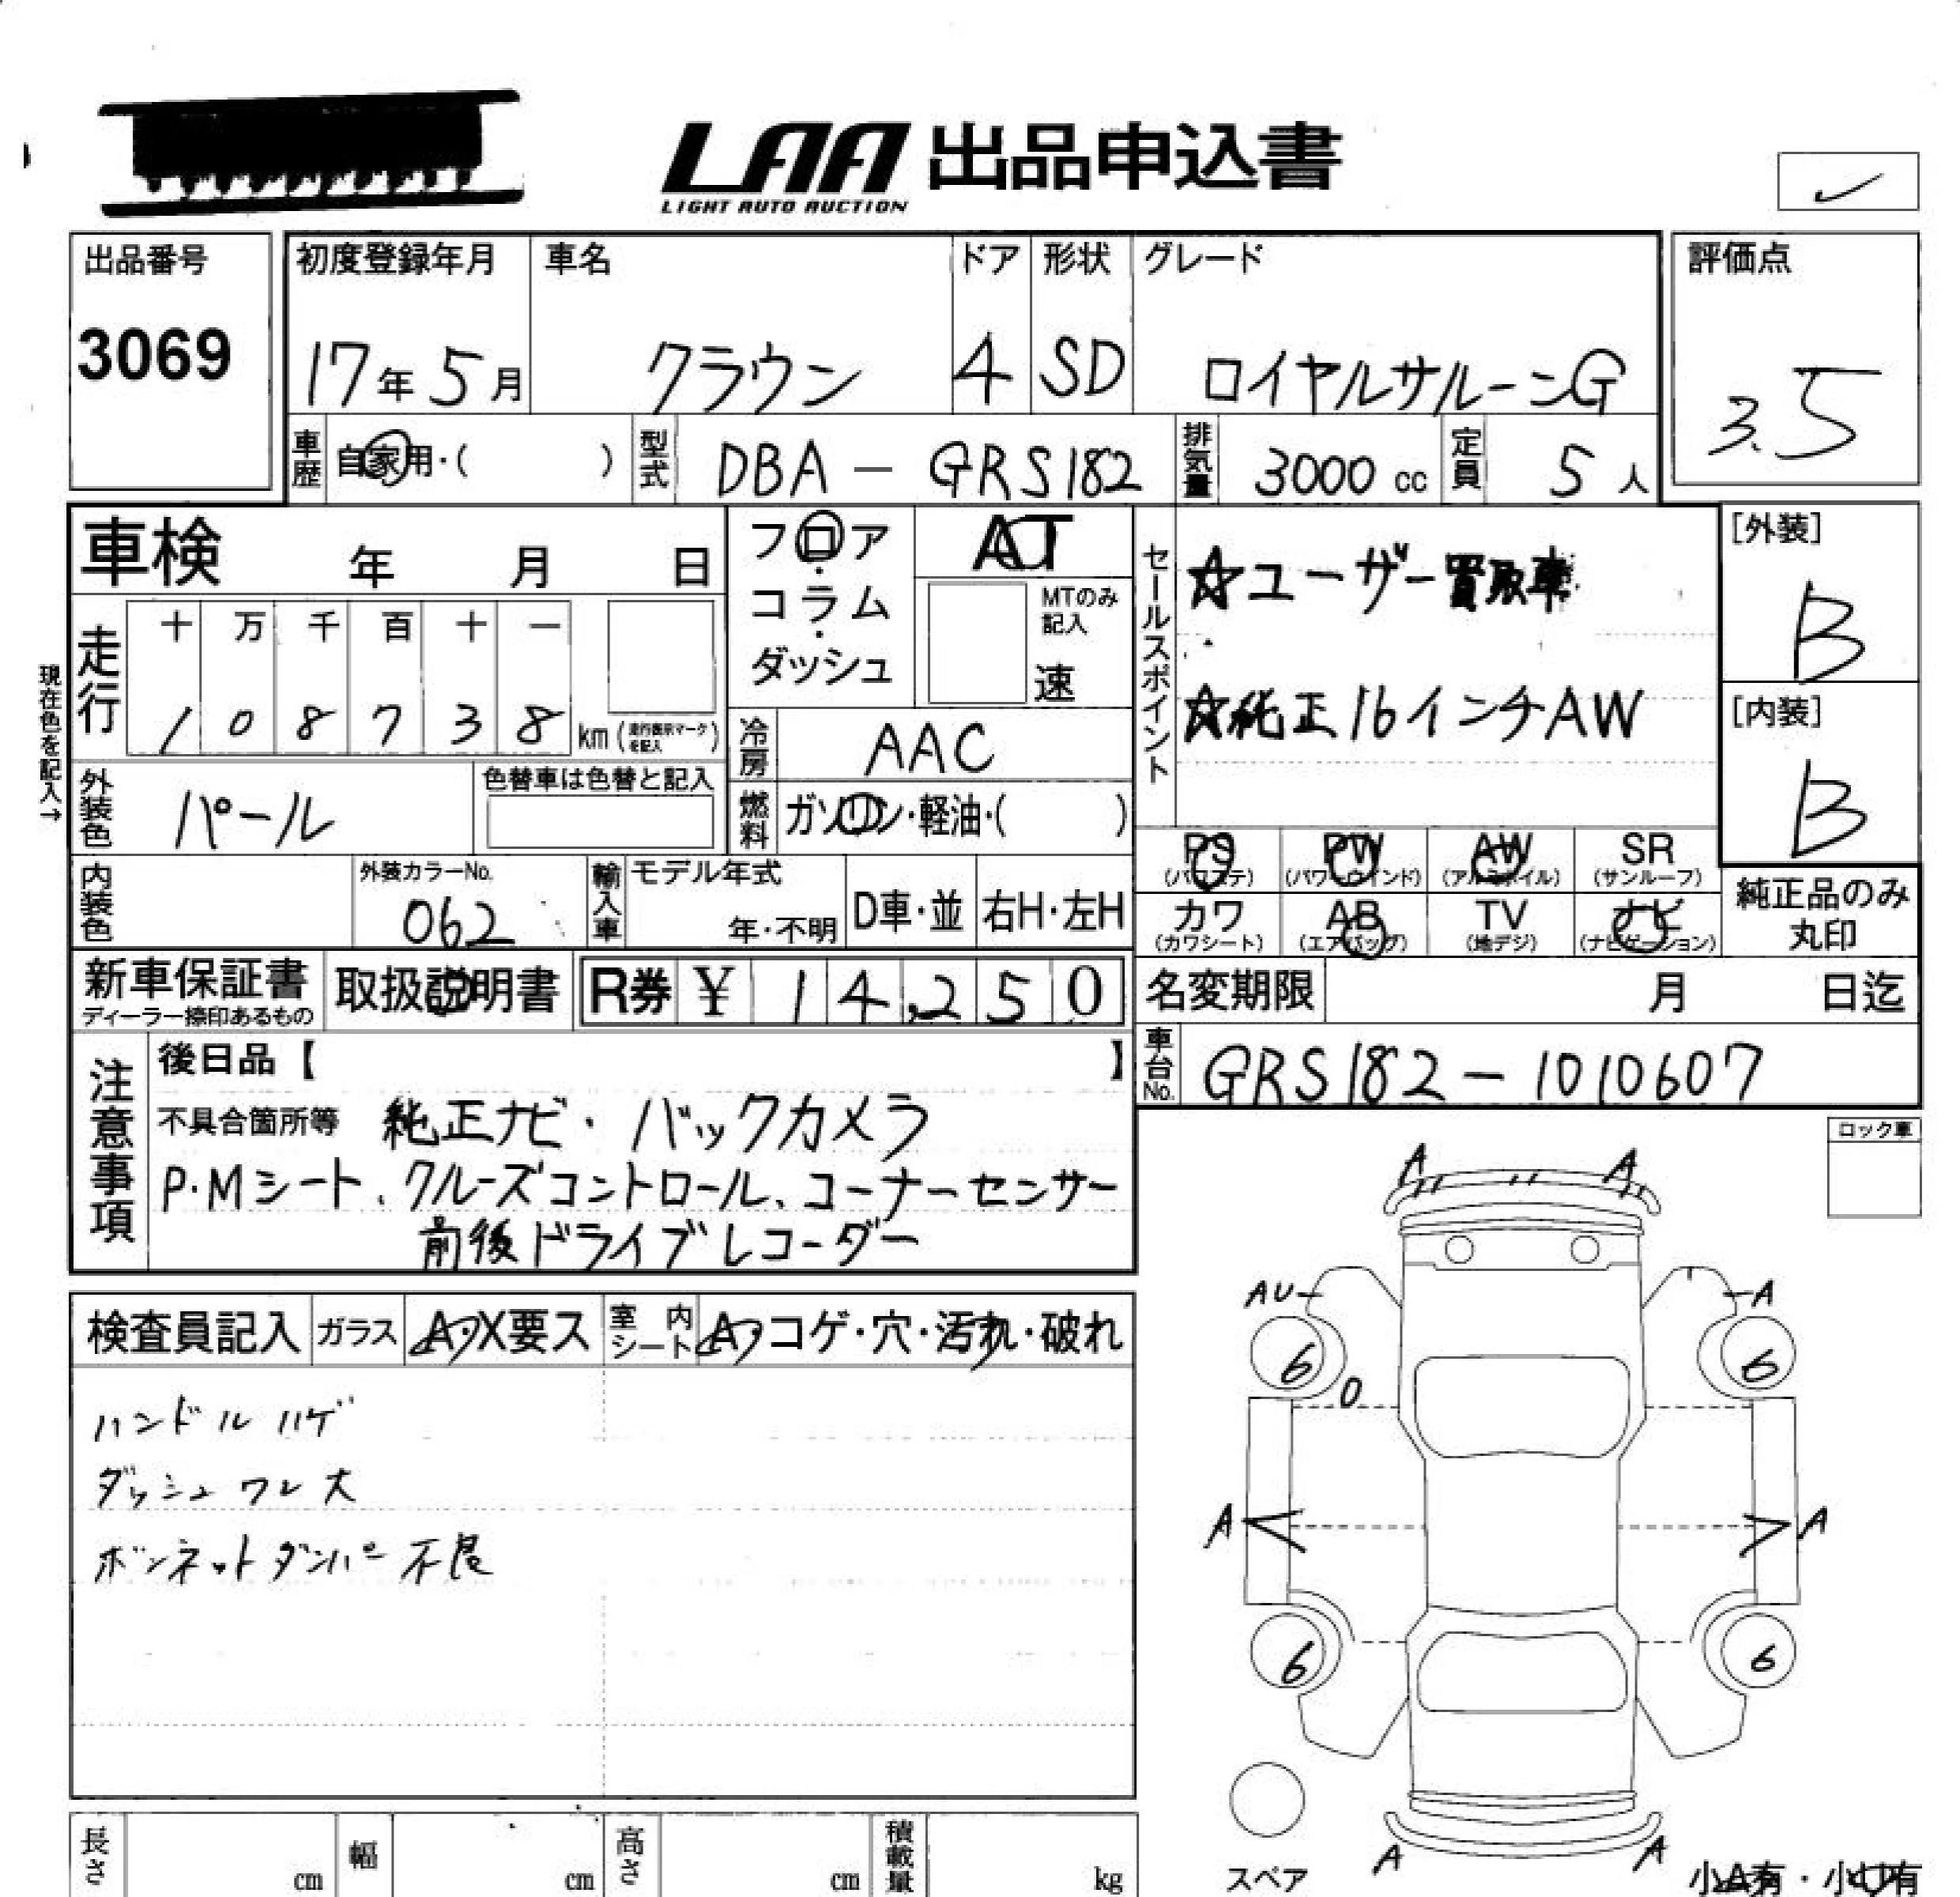 LAA 出品申込書
LIGHT AUTO AUCTION
出品番号
3069
初度登録年月 車名 ドア 形状 グレード
17年5月 クラウン 4 SD ロイヤルサルーンG
評価点
3.5
車歴 自家用・( ) 型式 DBA-GRS182 排気量 3000cc 定員 5人
車検 年 月 日
フロア・コラム・ダッシュ
AT
MTのみ記入
速
セールスポイント
☆ユーザー買取車
☆純正16インチAW
[外装]
B
[内装]
B
現在色を記入→
走行 十 万 千 百 十 一
1 0 8 7 3 8 km (走行表示マークを記入)
冷房 AAC
外装色 パール 色替車は色替と記入
燃料 ガソリン・軽油・( )
内装色 外装カラーNo. 062
輸入車 モデル年式 年・不明 D車・並 右H・左H
PS (パワステ) PW (パワーウインド) AW (アルミホイル) SR (サンルーフ)
カワ (カワシート) AB (エアバッグ) TV (地デジ) ナビ (ナビゲーション)
純正品のみ丸印
新車保証書 ディーラー捺印あるもの 取扱説明書 R券 ¥ 14,250
名変期限 月 日迄
車台No. GRS182-1010607
注意事項
後日品【 】
不具合箇所等 純正ナビ・バックカメラ
P・Mシート、クルーズコントロール、コーナーセンサー
前後ドライブレコーダー
ロック車
検査員記入 ガラス A・X要ス 室内シート A・コゲ・穴・汚れ・破れ
ハンドルハゲ
ダッシュワレ大
ボンネットダンパー不良
A A
AU A
6 6
O
A A
6 6
A A
スペア
小A有・小U有
長さ cm 幅 cm 高さ cm 積載量 kg